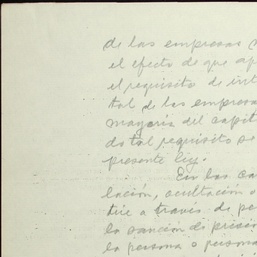 de las empresas
el efecto de que
el requisito de
tal de las empresa
mayoría del capit
do tal requisito se
presente ley.
En los
lación, ocultación o
túe a través de pe
la sanción de prisió
la persona o persona